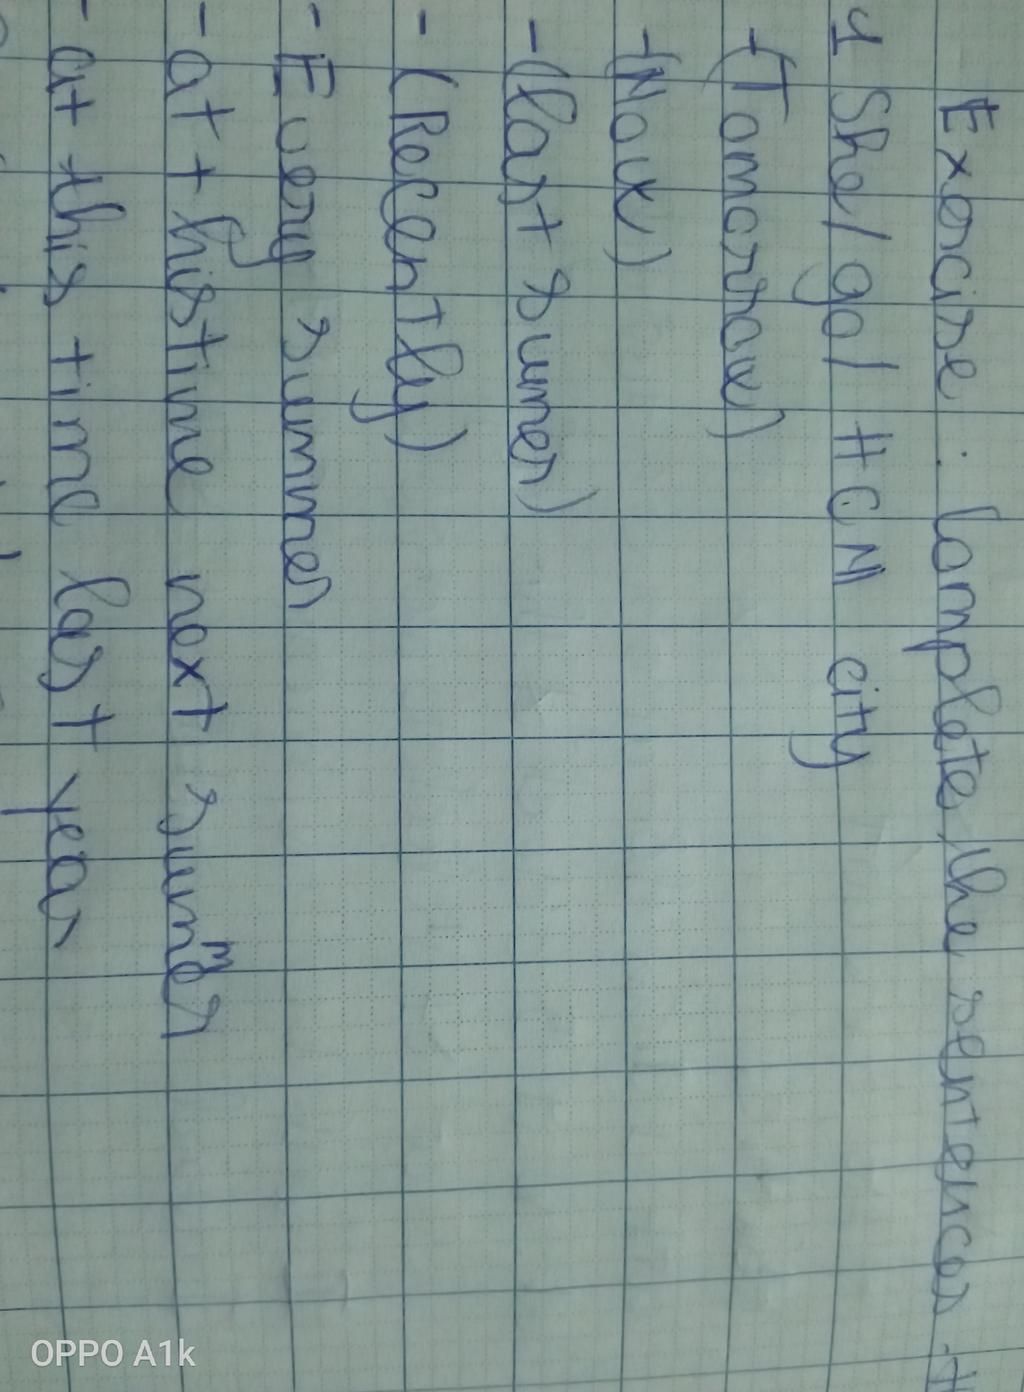 Exercise: Complete the sentences
1 She / go / HCM city
- (Tomorrow)
- (Now)
- (last sumer)
- (Recently)
- Every summer
- at this time next summer
- at this time last year
OPPO A1k